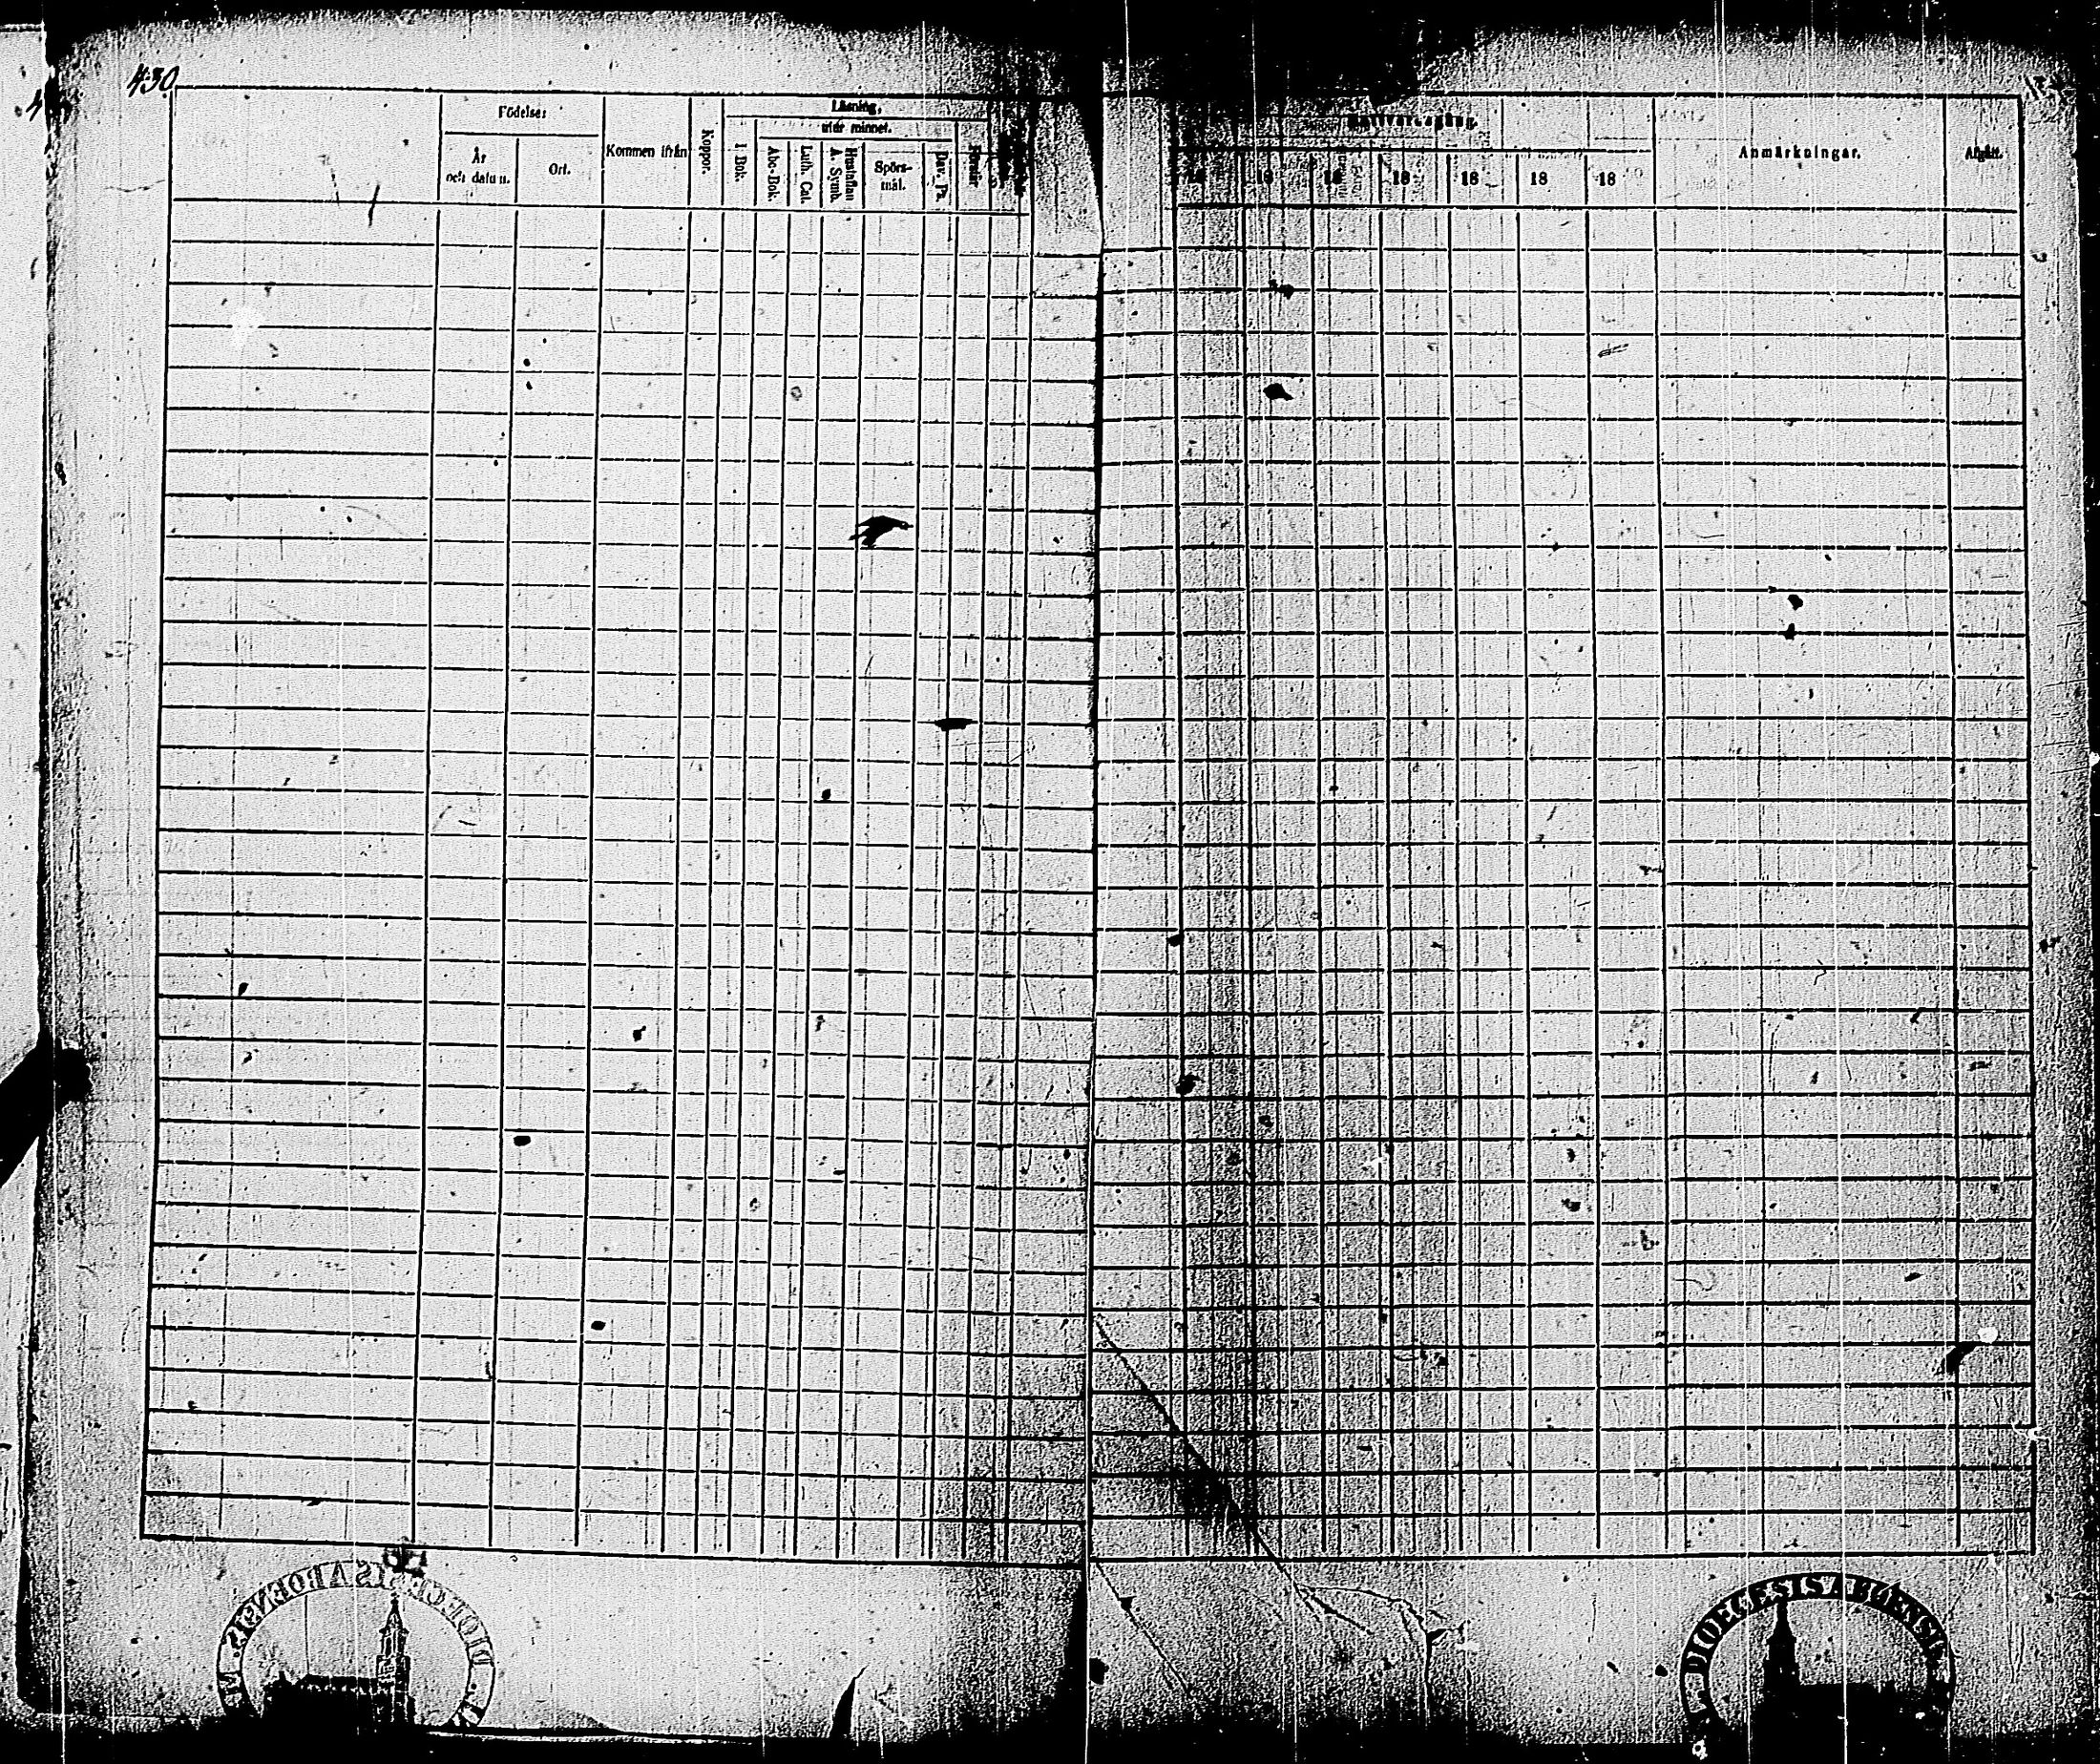 430
Födelse:
År och datum.
Ort.
Kommen ifrån
Koppor.
Läsning,
utur minnet.
I Bok.
Abc-Bok.
Luth. Cat.
Hustaflan A. Symb.
Spörs-mål.
Dav. Ps.
18 18 18 18 18 18 18
Anmärkningar.
Afgått.
DIOECESIS ABOENSIS. M
DIOECESIS ABOENSIS